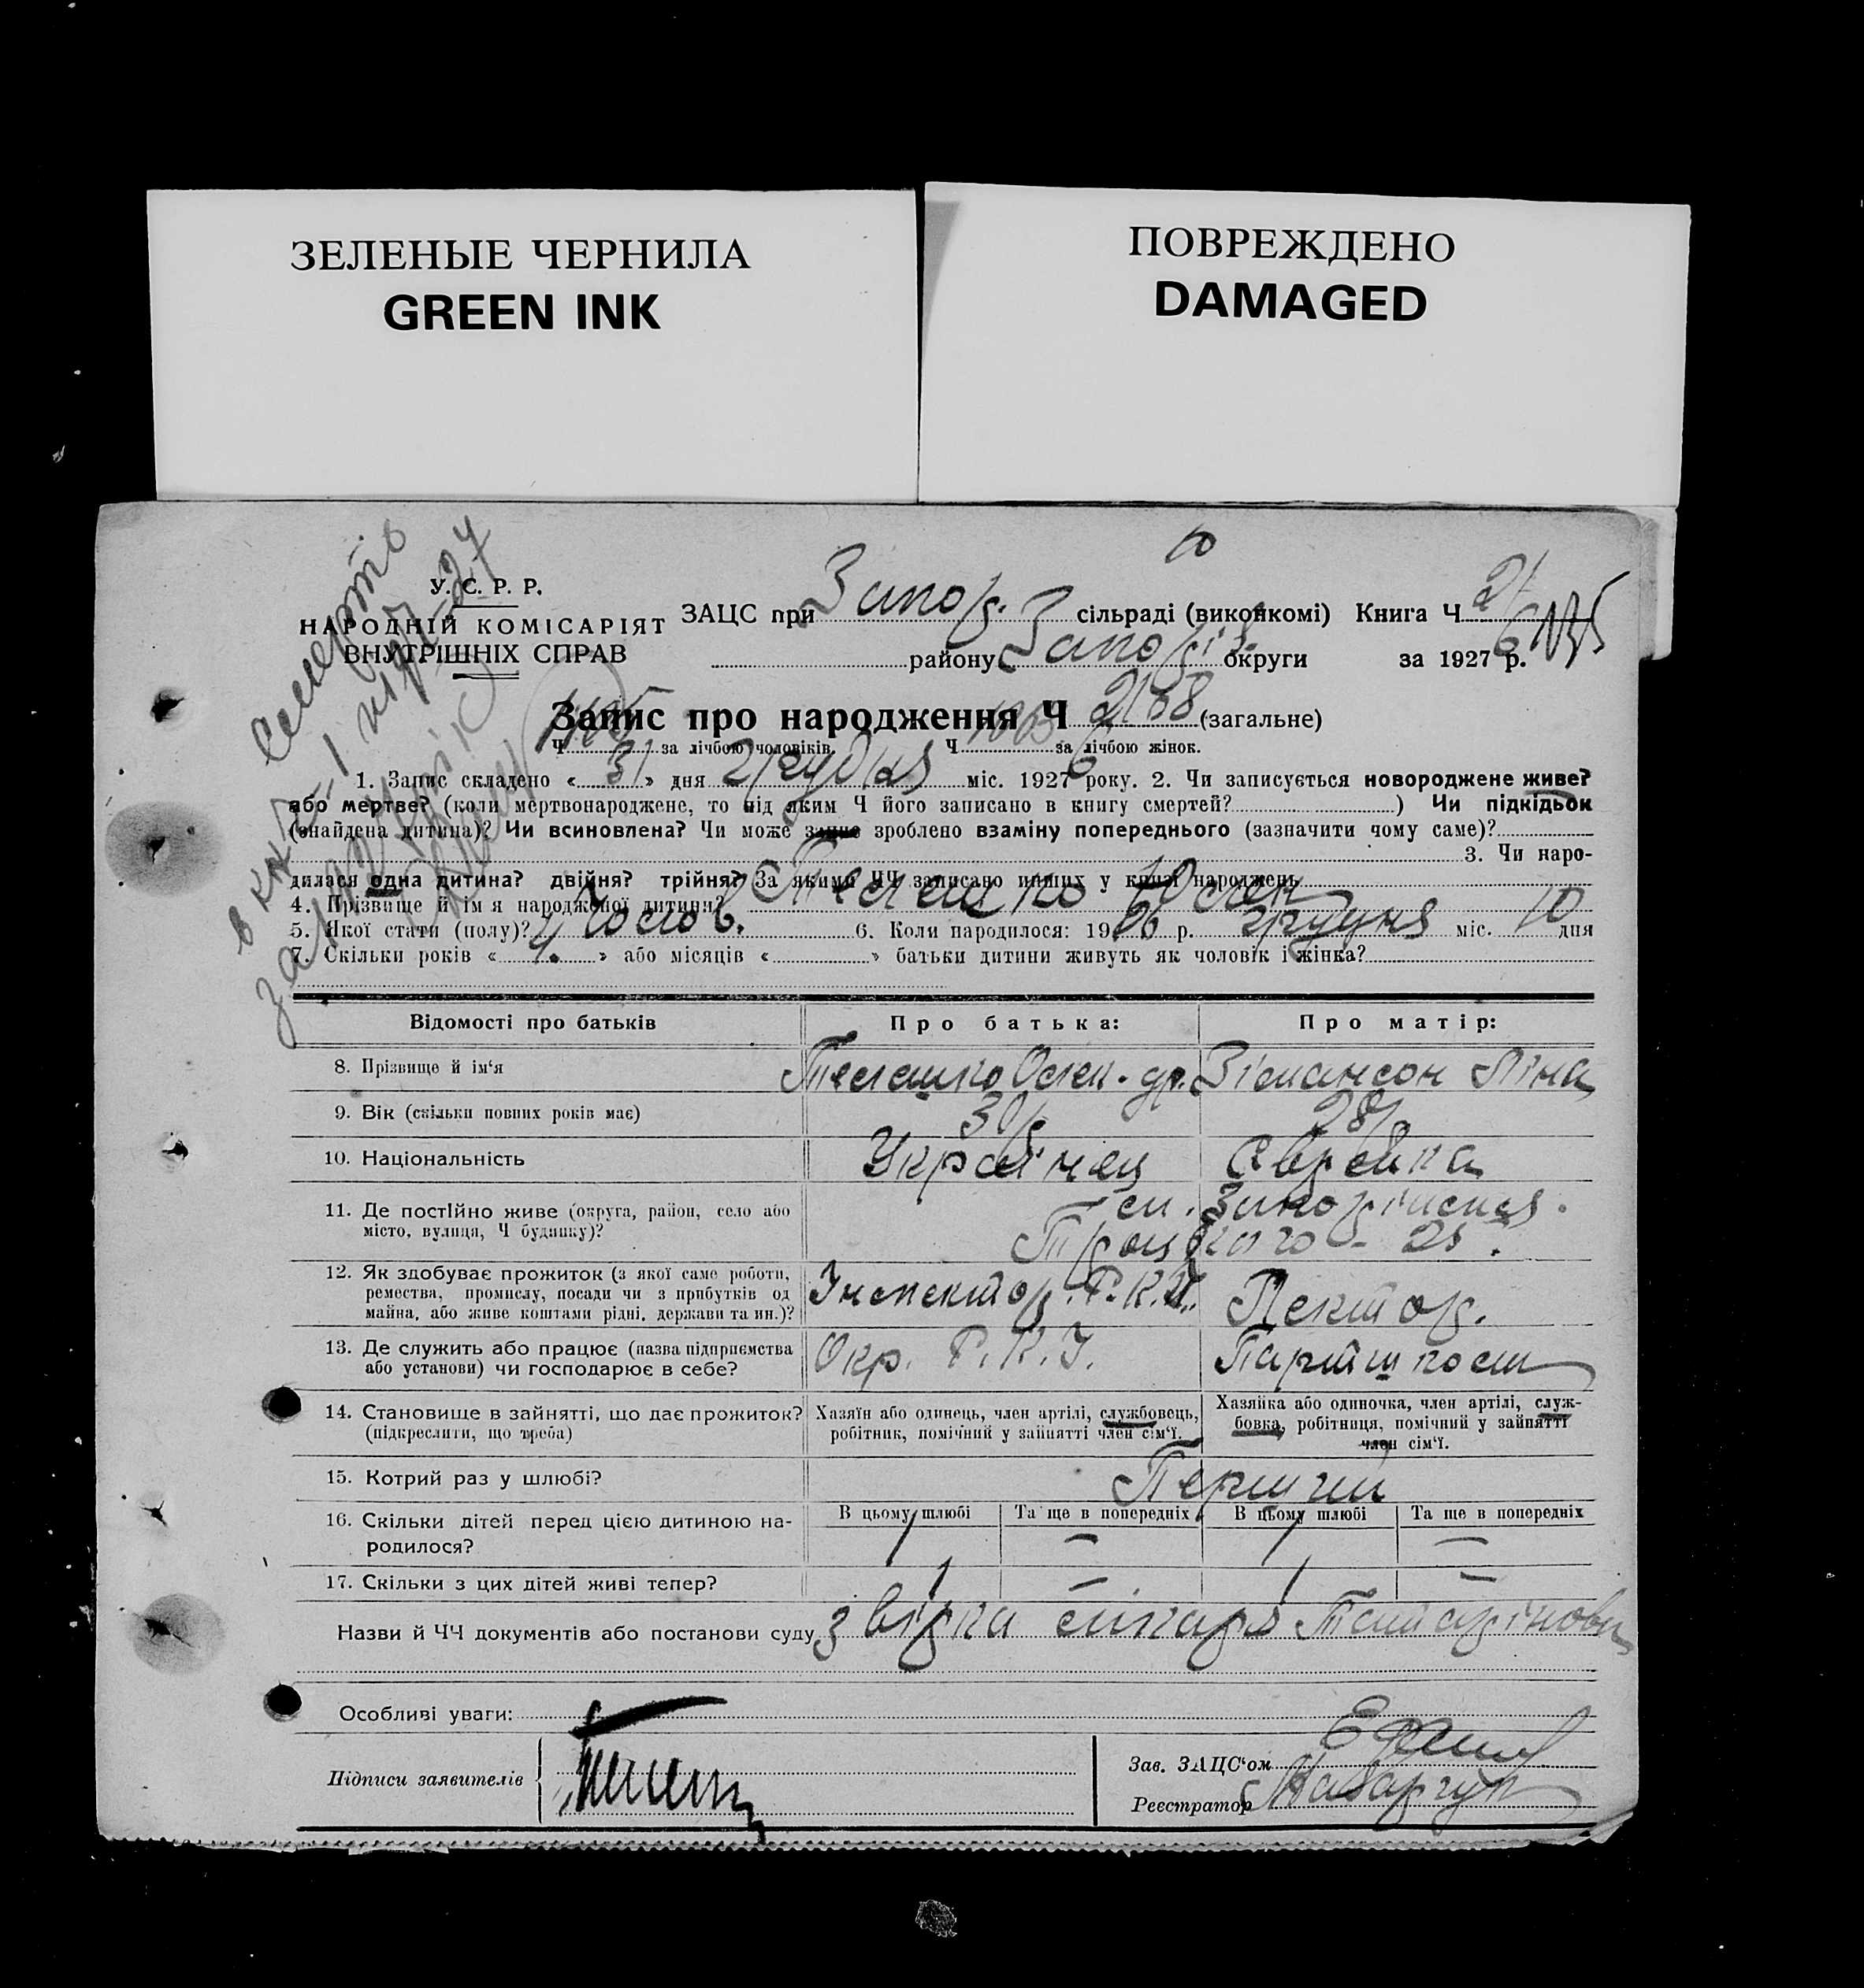 ЗЕЛЕНЫЕ ЧЕРНИЛА
GREEN INK
ПОВРЕЖДЕНО
DAMAGED
Смерть
У. С. Р. Р.
НАРОДНІЙ КОМІСАРІЯТ
ВНУТРІШНІХ СПРАВ
ЗАЦС при Запор. сільраді (виконкомі) Книга Ч 21
району Запоріз. округи за 1927 6 р.
Запис про народження Ч 2168 (загальне)
Ч за лічбою чоловіків. Ч за лічбою жінок.
1. Запис складено « 31 » дня грудня міс. 1927 6 року. 2. Чи записується новороджене живе?
або мертве? (коли мертвонароджене, то під яким Ч його записано в книгу смертей? ) Чи підкідьок
(знайдена дитина)? Чи всиновлена? Чи може запис зроблено взаміну попереднього (зазначити чому саме)?
3. Чи наро-
дилася одна дитина? двійня? трійня? За якими ЧЧ записано инших у книзі народжень
4. Прізвище й ім'я народженої дитини? Телешко
5. Якої стати (полу)? Чолов. 6. Коли народилося: 1926 р. грудня міс. 10 дня
7. Скільки років « 4. » або місяців « » батьки дитини живуть як чоловік і жінка?
Відомості про батьків
Про батька:
Про матір:
8. Прізвище й ім'я Телешко Олек-др. Зімансон Ліна
9. Вік (скільки повних років має) 30 р. 28 р.
10. Національність Українец Єврейка
11. Де постійно живе (округа, район, село або
місто, вулиця, Ч будинку)?
Троцького - 25.
12. Як здобуває прожиток (з якої саме роботи,
ремества, промислу, посади чи з прибутків од
майна, або живе коштами рідні, держави та ин.)?
Інспектор Р.К.І. Лектор.
13. Де служить або працює (назва підприємства
або установи) чи господарює в себе?
Окр. Р.К.І. Партшколи
14. Становище в зайнятті, що дає прожиток?
(підкреслити, що треба)
Хазяїн або одинець, член артілі, службовець,
робітник, помічний у зайнятті член сім'ї.
Хазяйка або одиночка, член артілі, служ-
бовка, робітниця, помічний у зайнятті
член сім'ї.
15. Котрий раз у шлюбі? Перший
16. Скільки дітей перед цією дитиною на-
родилося?
В цьому шлюбі Та ще в попередніх В цьому шлюбі Та ще в попередніх
1 — 1 —
17. Скільки з цих дітей живі тепер? 1 — 1 —
Назви й ЧЧ документів або постанови суду
Особливі уваги:
Підписи заявителів
Зав. ЗАЦС'ом
Реєстратор